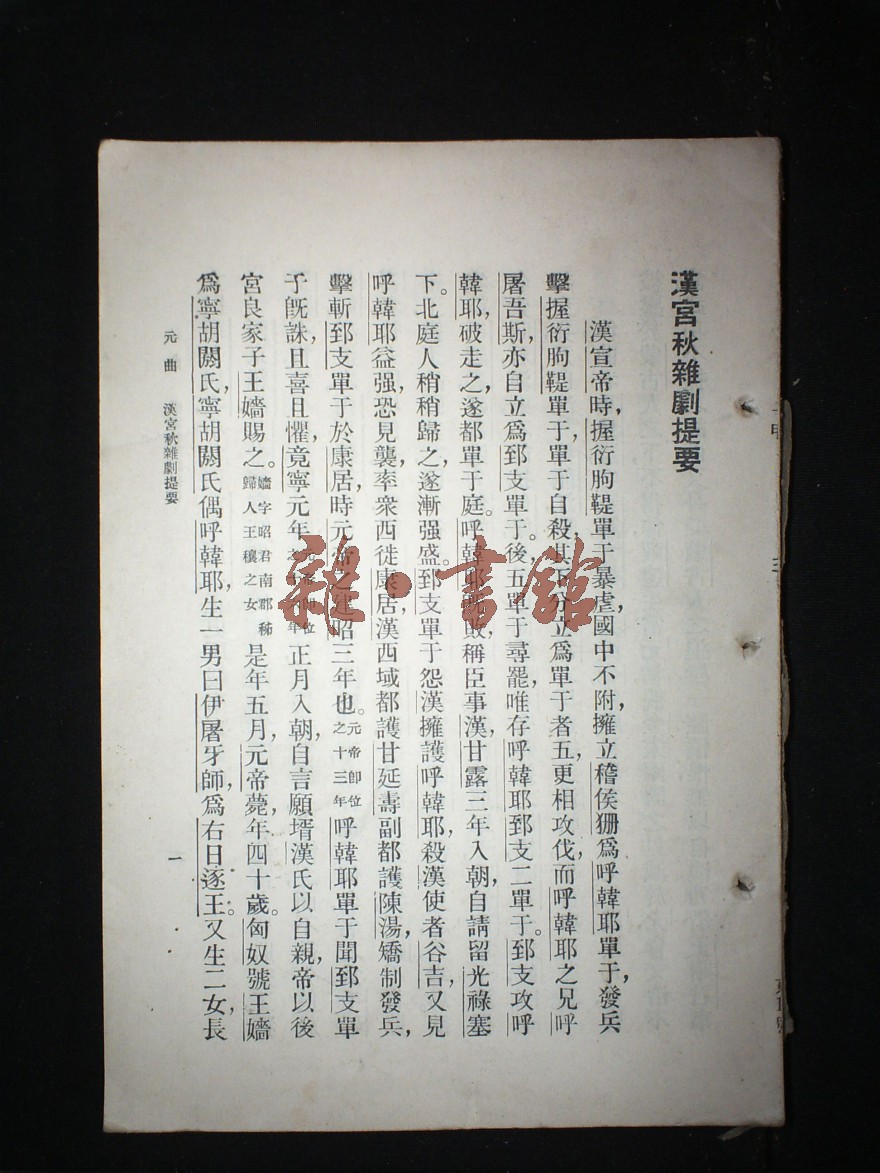 漢宮秋雜劇提要
漢宣帝時,握衍朐鞮單于暴虐,國中不附,擁立稽侯狦爲呼韓耶單于,發兵
擊握衍朐鞮單于,單于自殺,其分立爲單于者五,更相攻伐,而呼韓耶之兄呼
屠吾斯,亦自立爲郅支單于。後五單于尋罷,唯存呼韓耶郅支二單于。郅支攻呼
韓耶,破走之,遂都單于庭。呼韓耶敗,稱臣事漢,甘露三年入朝,自請留光祿塞
下。北庭人稍稍歸之,遂漸强盛。郅支單于怨漢擁護呼韓耶,殺漢使者谷吉,又見
呼韓耶益强,恐見襲,率衆西徙康居,漢西域都護甘延壽副都護陳湯,矯制發兵,
擊斬郅支單于於康居,時元帝之建昭三年也。元帝卽位之十三年呼韓耶單于聞郅支單
于旣誅,且喜且懼,竟寧元年元帝卽位之十六年正月入朝,自言願壻漢氏以自親,帝以後
宮良家子王嬙賜之。嬙字昭君南郡秭歸人王穰之女是年五月,元帝薨,年四十歲。匈奴號王嬙
爲寧胡閼氏,寧胡閼氏偶呼韓耶,生一男曰伊屠牙師,爲右日逐王。又生二女,長
元曲 漢宮秋雜劇提要
一
雜·書館